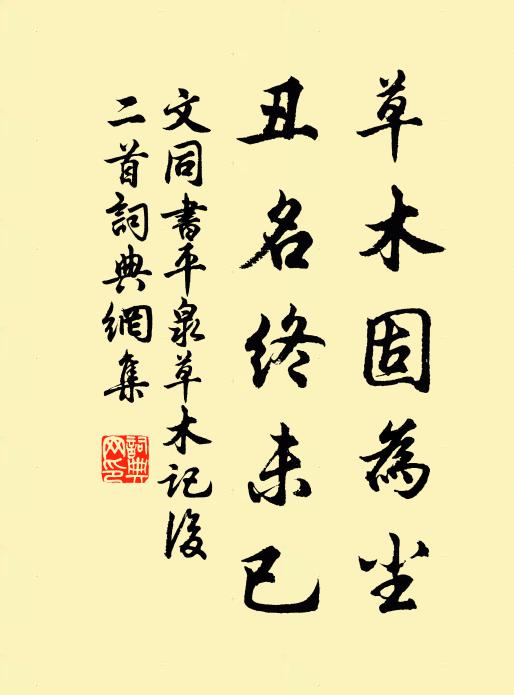 草木固為尘
丑名終未已
文同書平泉草木記後
二首詞典網集
詞典
网印